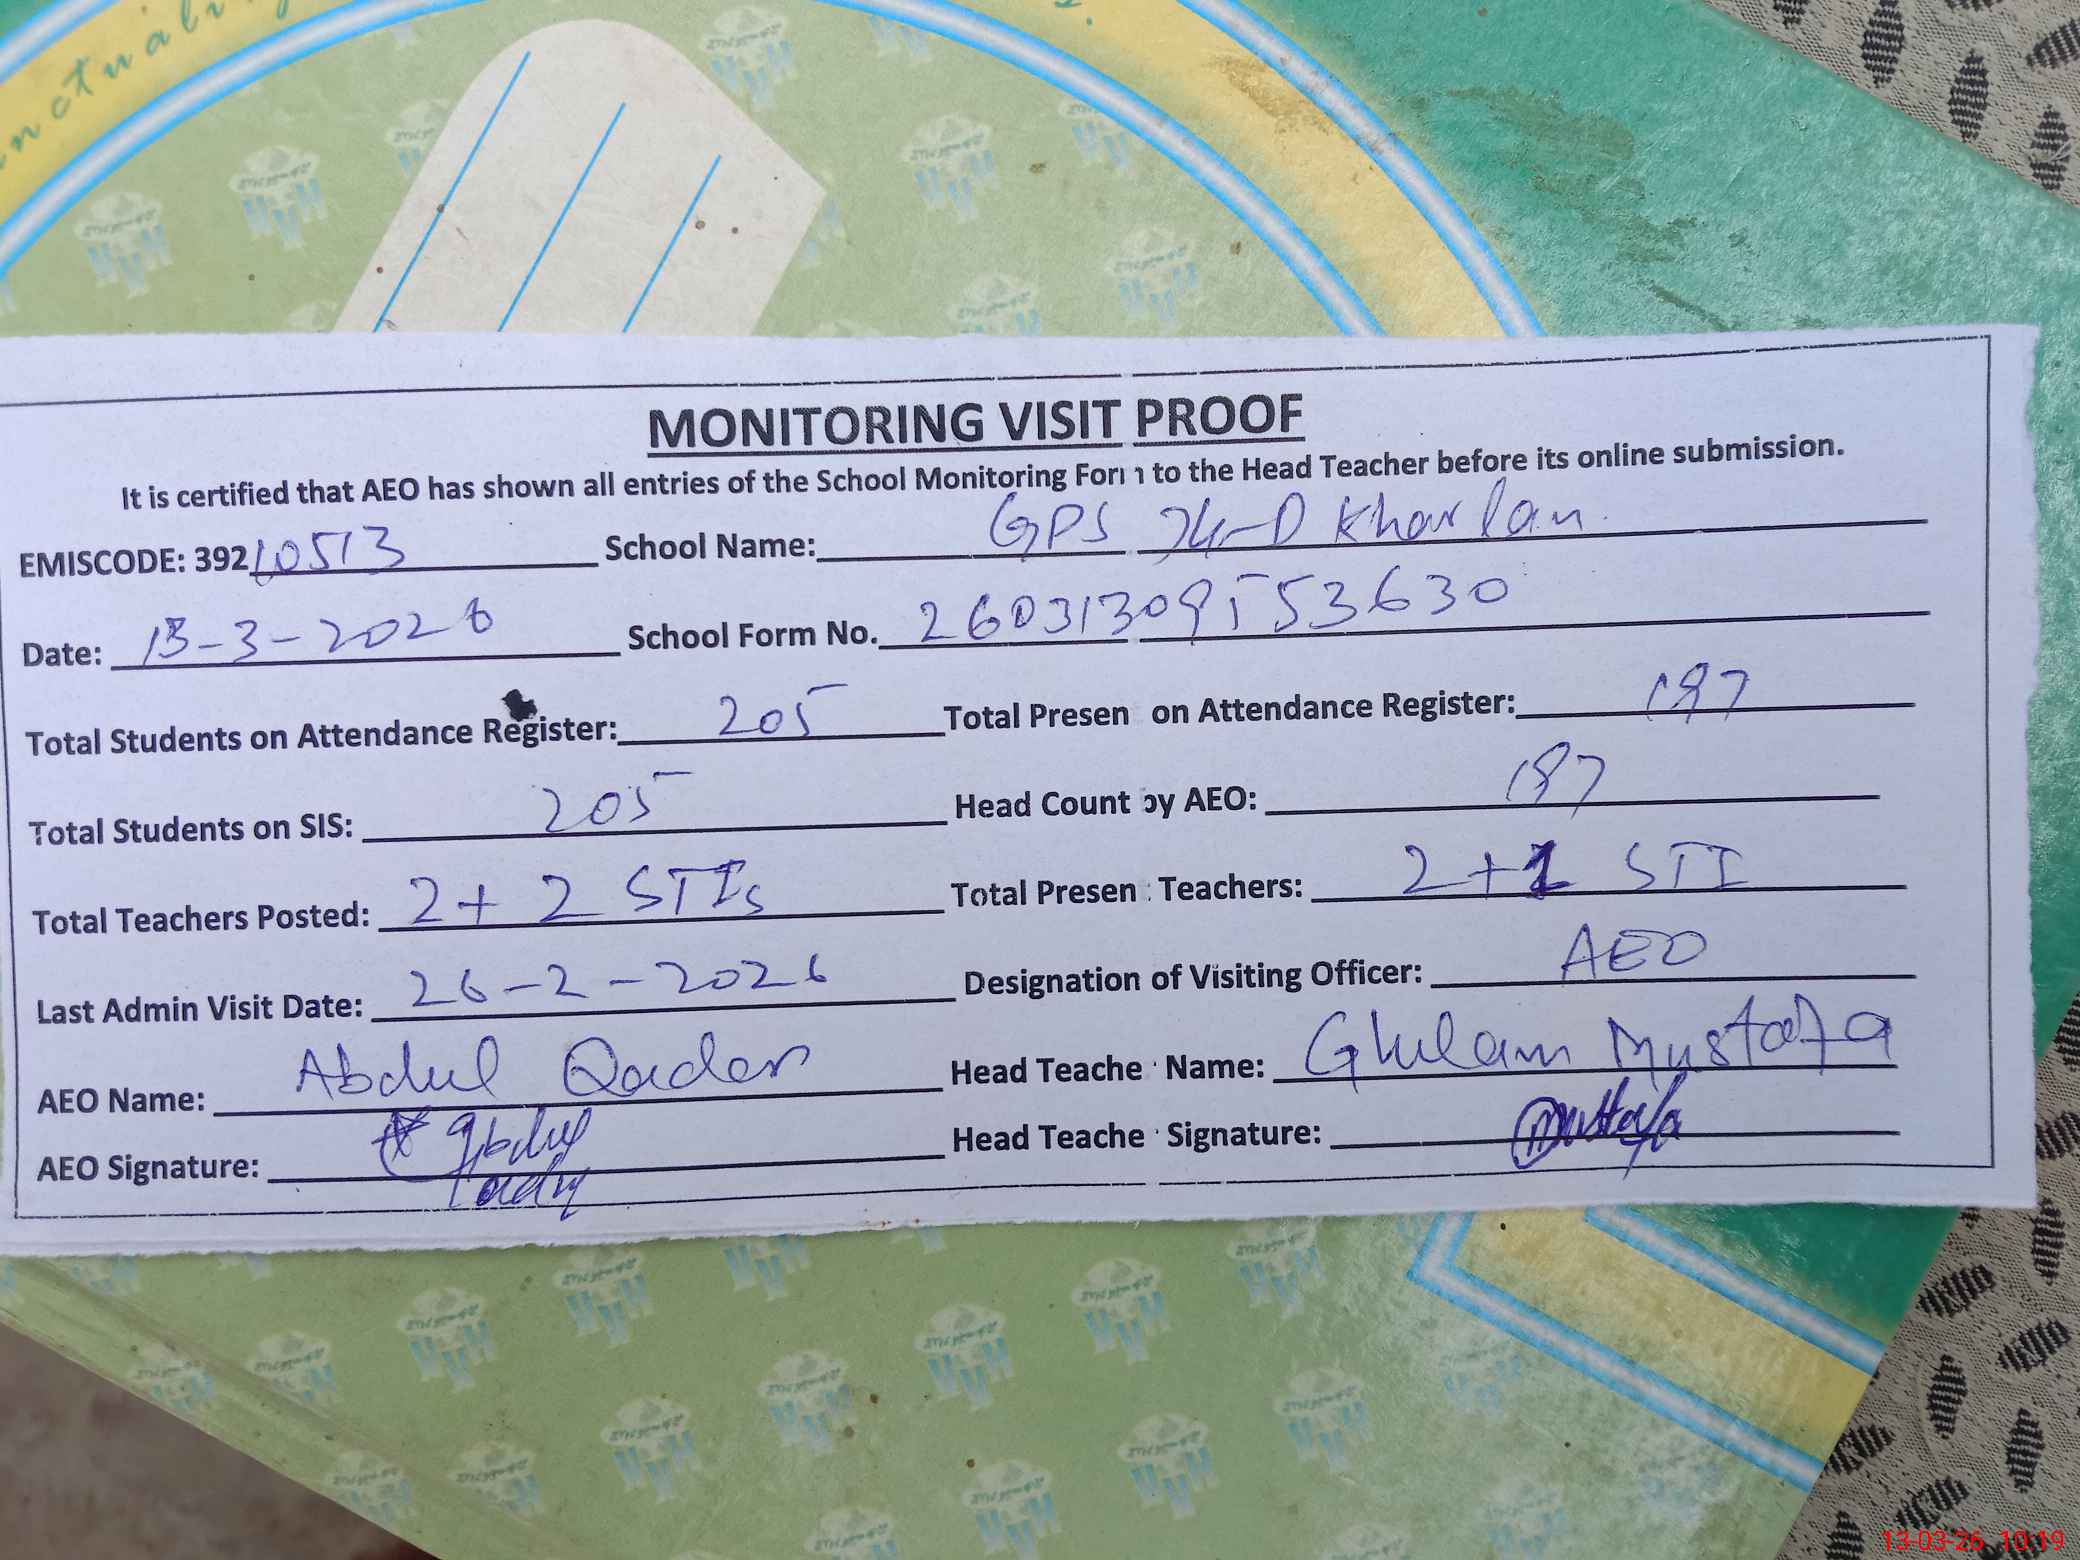 nctuali
MONITORING VISIT PROOF
It is certified that AEO has shown all entries of the School Monitoring Form to the Head Teacher before its online submission.
EMISCODE: 39210513 School Name: GPS 74-D Kharlan.
Date: 13-3-2026 School Form No. 26031309553630
Total Students on Attendance Register: 205 Total Presen on Attendance Register: 187
Total Students on SIS: 205 Head Count by AEO: 187
Total Teachers Posted: 2+ 2 STIs Total Presen Teachers: 2+1 STI
Last Admin Visit Date: 26-2-2026 Designation of Visiting Officer: AEO
AEO Name: Abdul Qader Head Teache Name: Ghulam Mustafa
AEO Signature: Head Teache Signature: Mustafa
13-03-26 10:19